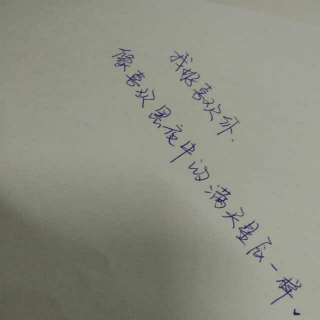 我挺喜欢你.
像喜欢黑夜中的满天星辰一样.